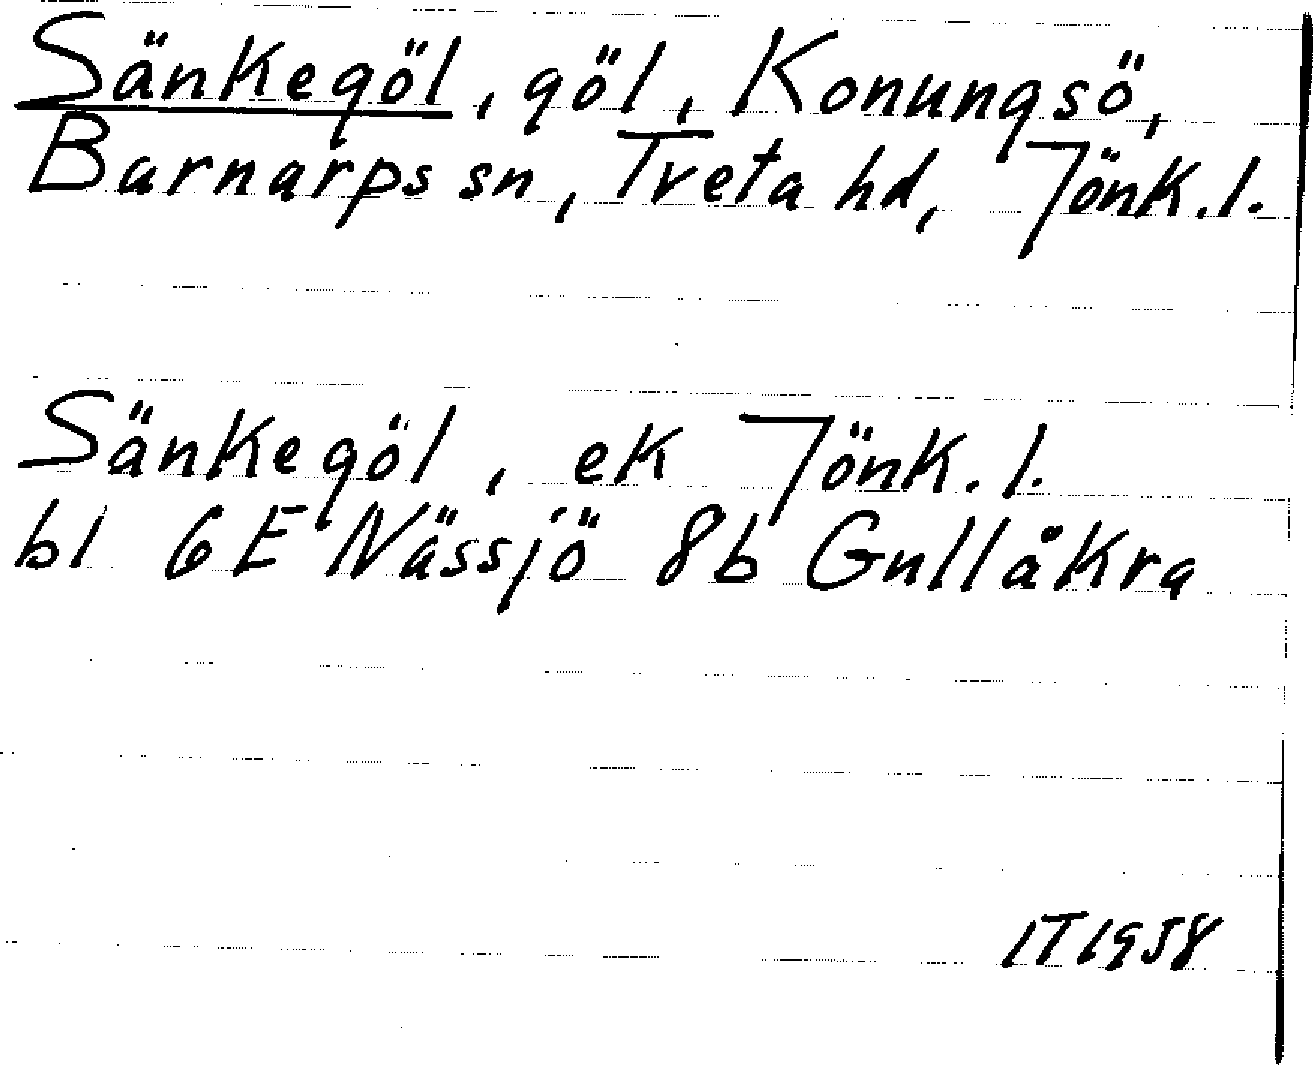 Sänkegöl, göl, Konungsö,
Barnarps sn, Tveta hd, Jönk. l.
Sänkegöl, ek Jönk. l.
bl 6E Nässjö 8b Gullåkra
IT 1958